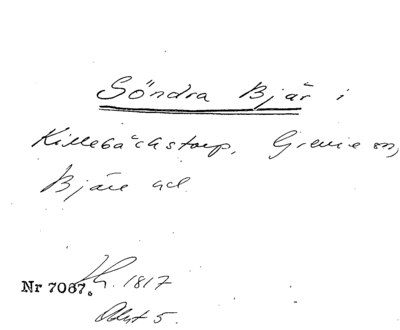 Söndra Bjär i
Killebäckstorp, Grevie sn,
Bjäre hd.
Nr 7067. 1817
Avst 5.